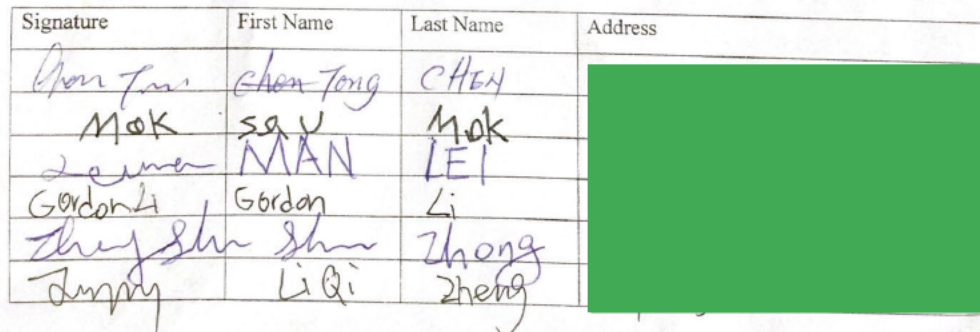 Signature First Name Last Name Address
Chen-Tong CHEN
Mok sau Mok
MAN LEI
Gordon Li Gordon Li
Zhong
LiQi Zheng